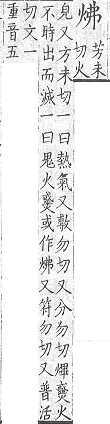 炥
芳未
切火
皃又方未切一曰熱氣又敷勿切又分勿切煇㷸火
不時出而滅一曰鬼火㷸或作炥又符勿切又普活
切文一
重音五